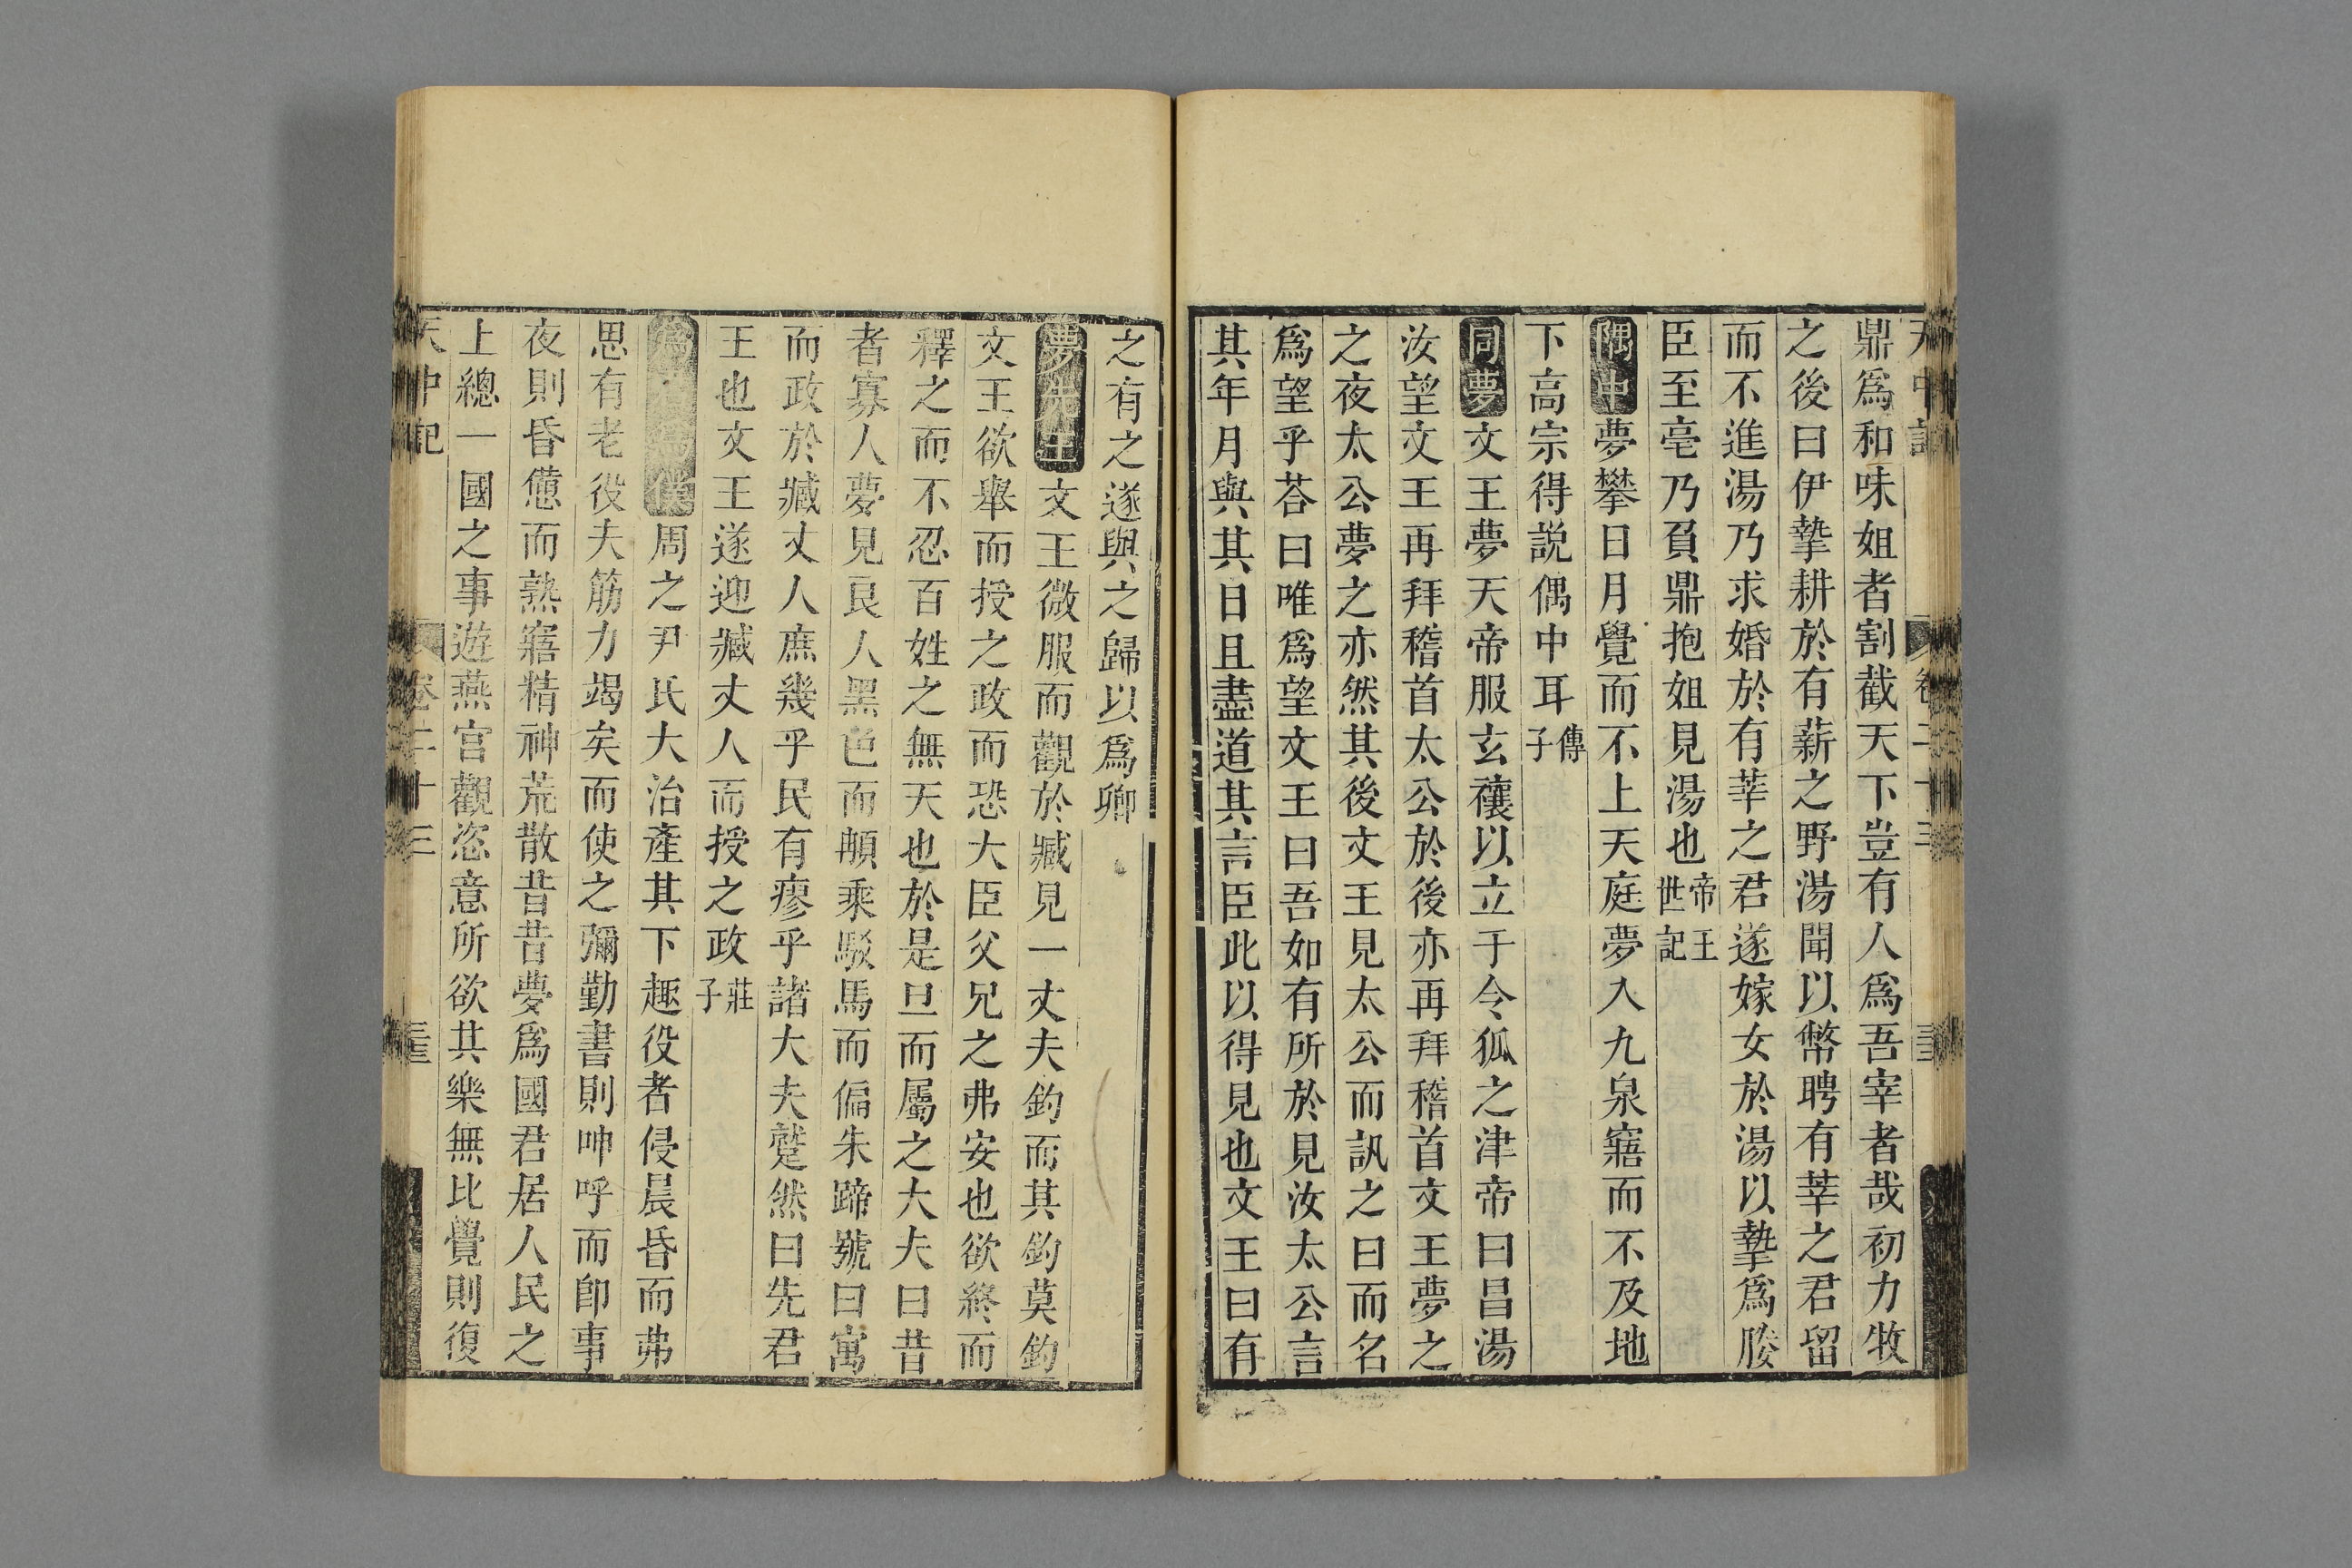 天中記 卷二十三
鼎爲和味姐者割截天下豈有人爲吾宰者哉初力牧
之後曰伊摯耕於有薪之野湯聞以幣聘有莘之君留
而不進湯乃求婚於有莘之君遂嫁女於湯以摯爲媵
臣至亳乃負鼎抱姐見湯也帝王世記
隅中夢攀日月覺而不上天庭夢入九泉寤而不及地
下高宗得説偶中耳傳子
同夢文王夢天帝服玄禳以立于令狐之津帝曰昌湯
汝望文王再拜稽首太公於後亦再拜稽首文王夢之
之夜太公夢之亦然其後文王見太公而訊之曰而名
爲望乎荅曰唯爲望文王曰吾如有所於見汝太公言
其年月與其日且盡道其言臣此以得見也文王曰有
之有之遂與之歸以爲卿
夢先王文王微服而觀於臧見一丈夫釣而其釣莫釣
文王欲舉而授之政而恐大臣父兄之弗安也欲終而
釋之而不忍百姓之無天也於是旦而屬之大夫曰昔
者寡人夢見良人黑色而䫇乘駁馬而偏朱蹄號曰寓
而政於臧丈人庶幾乎民有瘳乎諸大夫蹵然曰先君
王也文王遂迎臧丈人而授之政莊子
周之尹氏大治產其下趣役者侵晨昏而弗
思有老役夫筋力竭矣而使之彌勤晝則呻呼而卽事
夜則昏憊而熟寤精神荒散昔昔夢爲國君居人民之
上總一國之事遊燕宫觀恣意所欲其樂無比覺則復
天中記 卷二十三